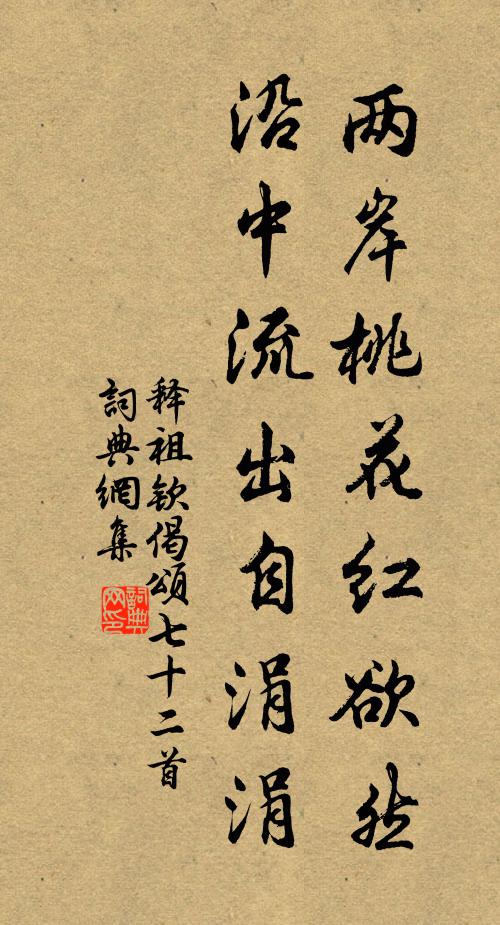 两岸桃花红欲然
沿中流出自涓涓
释祖钦偈頌七十二首
詞典網集
詞典网印